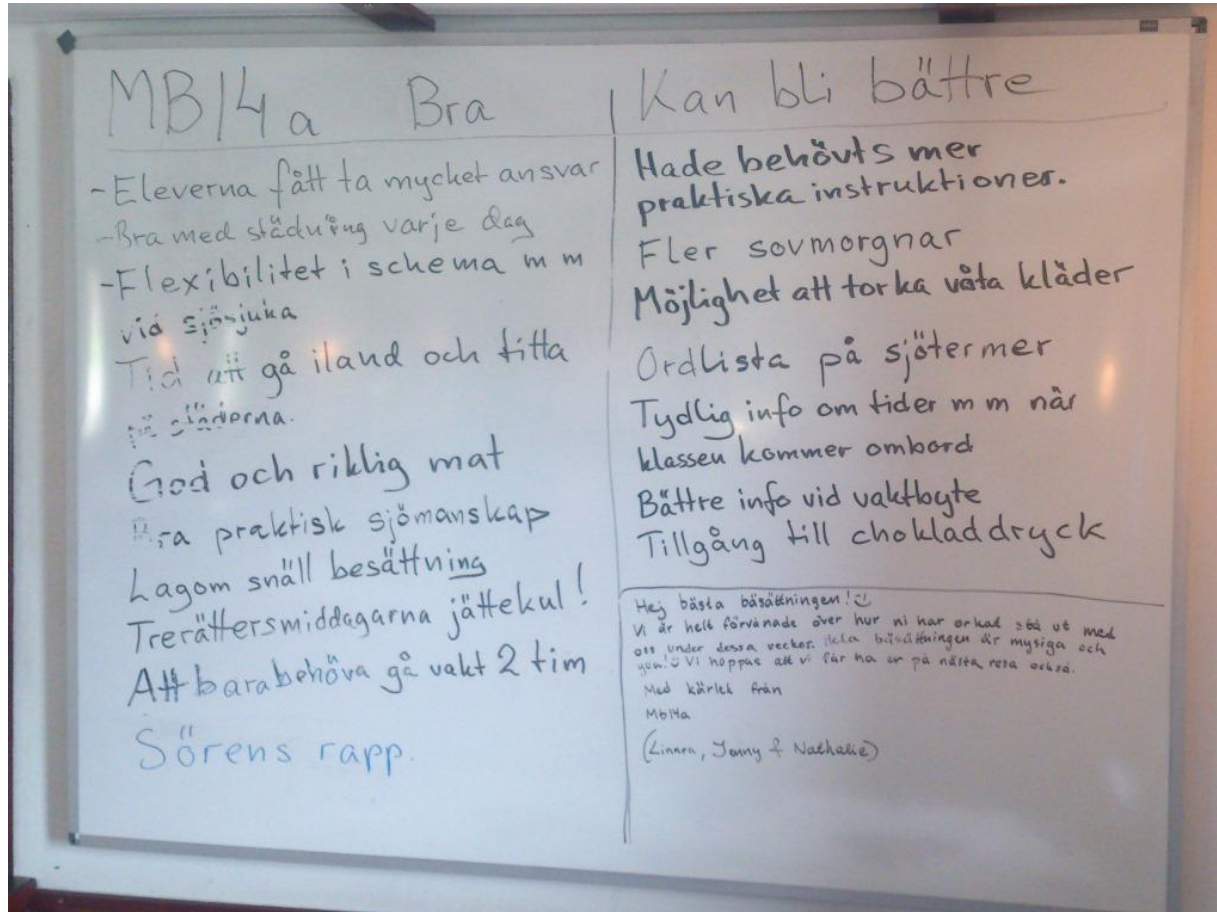 MB14a Bra
- Eleverna fått ta mycket ansvar
- Bra med städning varje dag
- Flexibilitet i schema m m
vid sjösjuka
Tid att gå iland och titta
på städerna.
God och riklig mat
Bra praktisk sjömanskap
Lagom snäll besättning
Trerättersmiddagarna jättekul!
Att bara behöva gå vakt 2 tim
Sörens rapp.
Kan bli bättre
Hade behövts mer
praktiska instruktioner.
Fler sovmorgnar
Möjlighet att torka våta kläder
Ordlista på sjötermer
Tydlig info om tider m m när
klassen kommer ombord
Bättre info vid vaktbyte
Tillgång till chokladdryck
Hej bästa bäsättningen!
Vi är helt förvånade över hur ni har orkat stå ut med
oss under dessa veckor. Hela bäsättningen är mysiga och
goa! Vi hoppas att vi får ha er på nästa resa också.
Med kärlek från
Mb14a
(Linnea, Jenny & Nathalie)